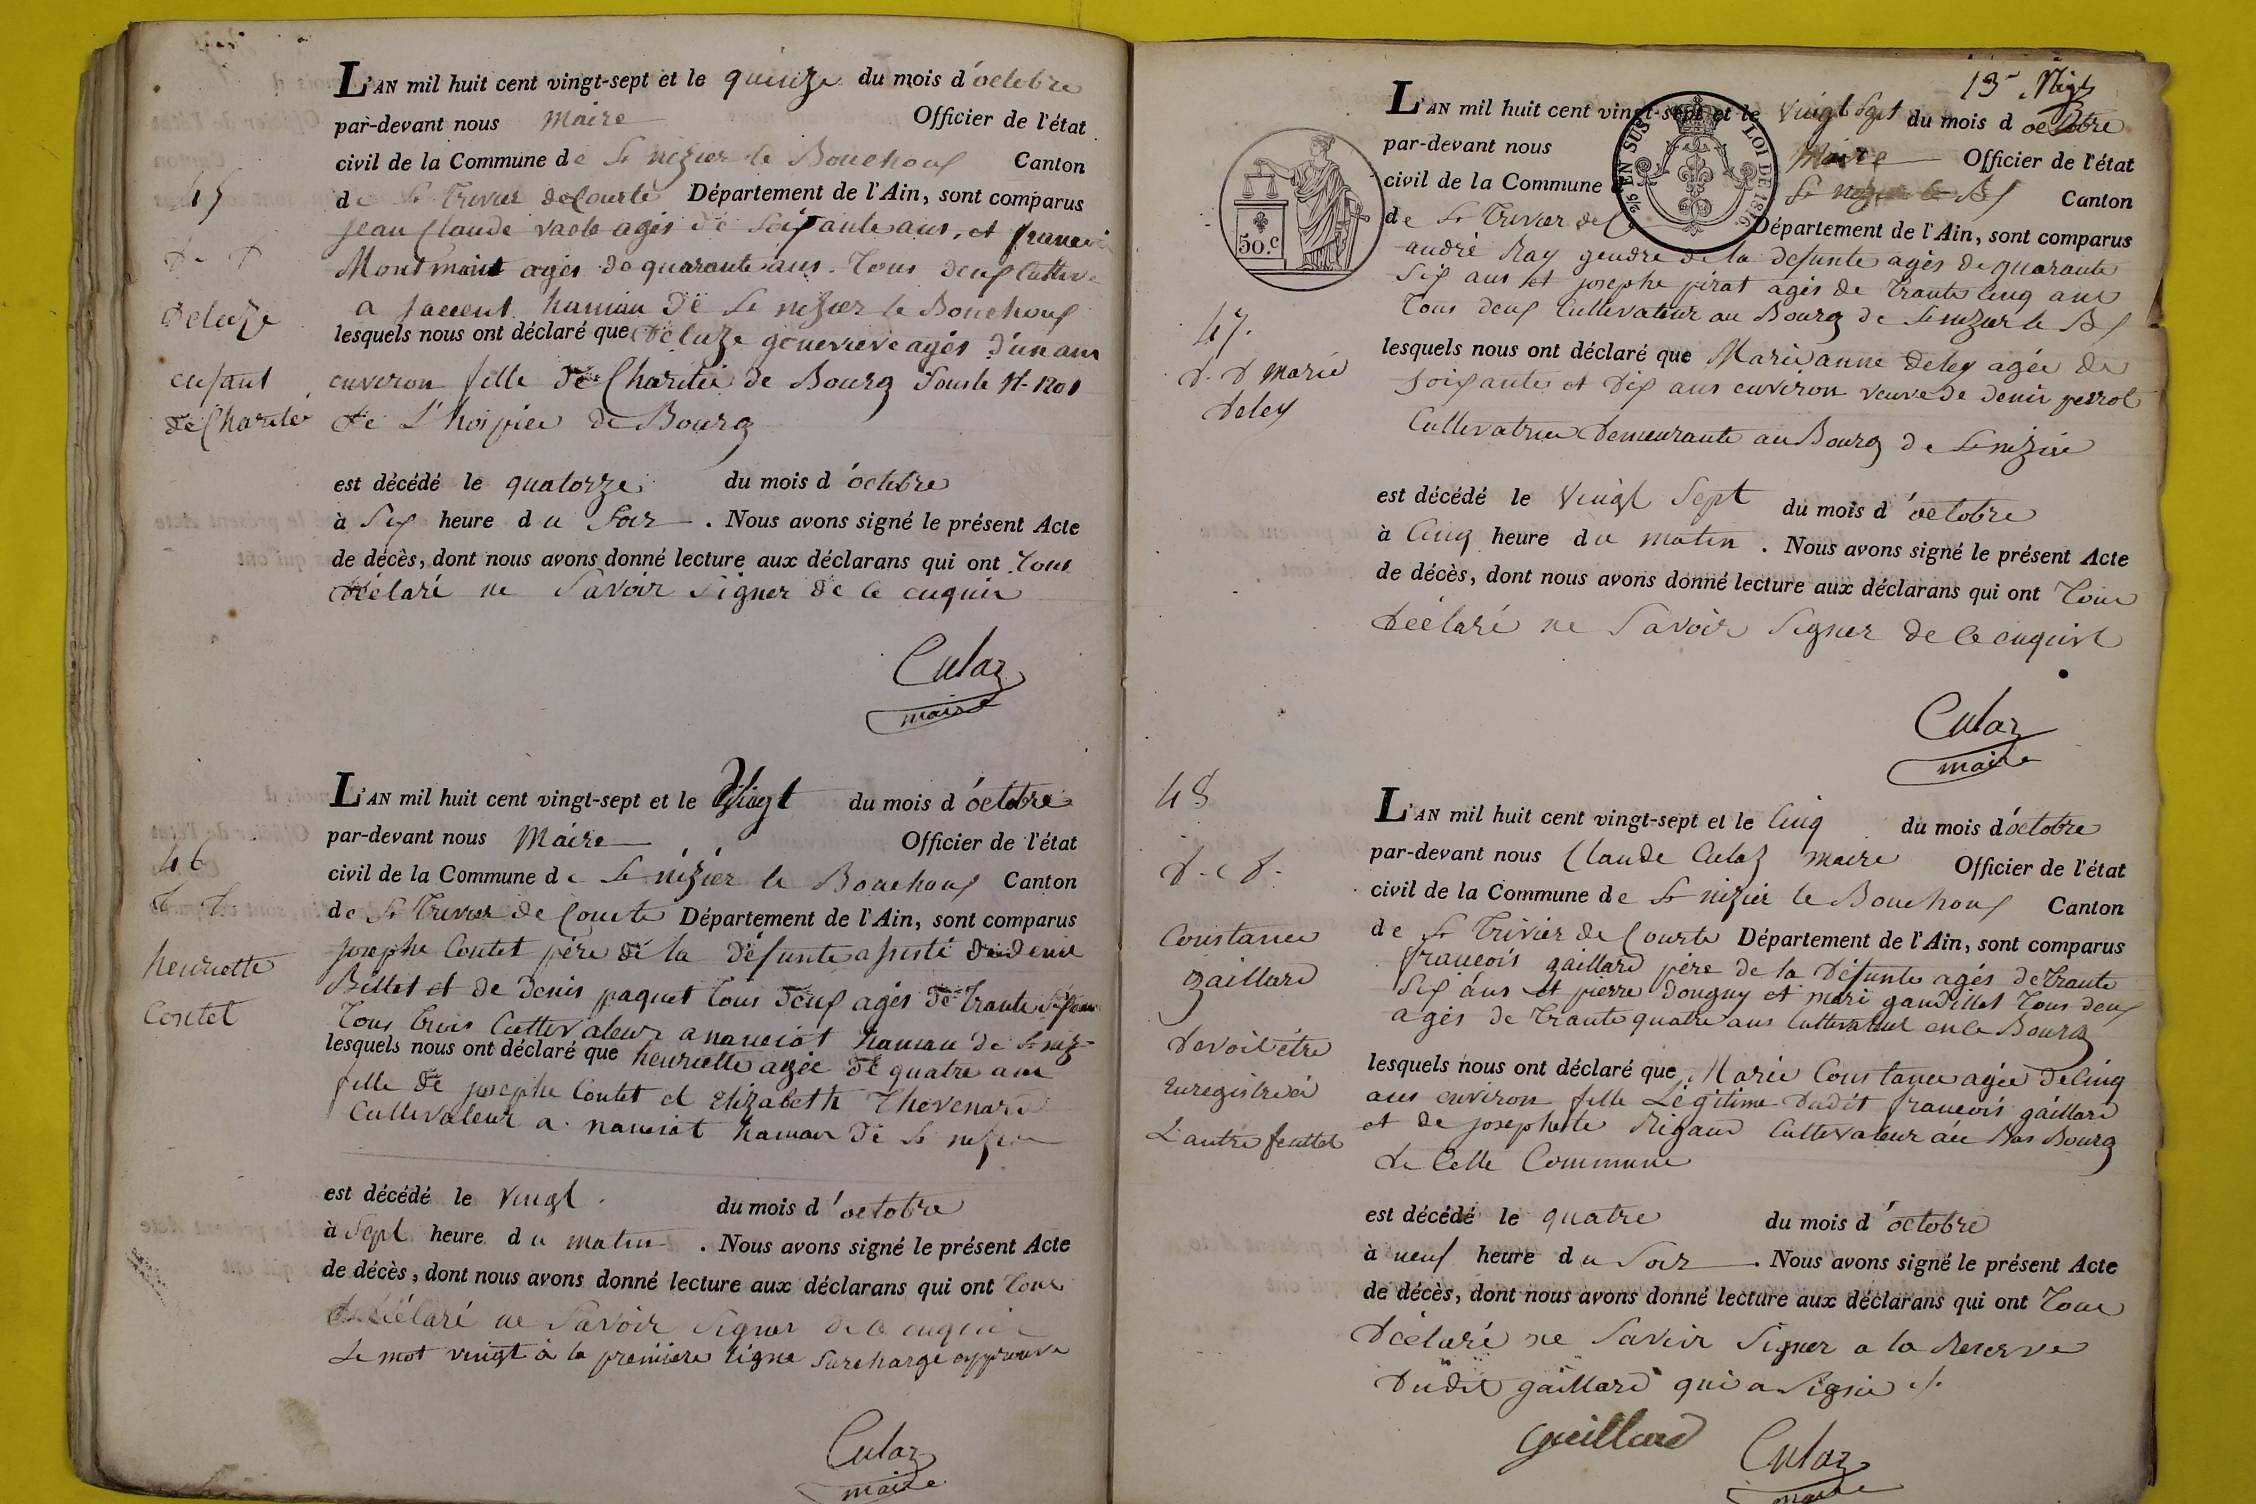 L'AN mil huit cent vingt-sept et le quinze du mois d'octobre
par-devant nous Maire Officier de l'état
civil de la Commune de St nizier le Bouchoux Canton
45
de St Trivier de Courte Département de l'Ain, sont comparus
jean Claude agés de soixante ans, et francois
d D
Montmain agés de quarante ans. Tous deux
Delaze
a hamau de St nizier le Bouchoux
lesquels nous ont déclaré que Delaze genevieve agés d'un an
enfant
environ fille de Charitée de Bourg Sous le N. 1201
de Charité
de L'hospice de Bourg
est décédé le quatorze du mois d'octobre
à Six heure du Soir. Nous avons signé le présent Acte
de décès, dont nous avons donné lecture aux déclarans qui ont Tous
déclaré ne Savoir Signer de ce enquis
Culaz
maire
L'AN mil huit cent vingt-sept et le Vingt du mois d'octobre
par-devant nous Maire Officier de l'état
46
civil de la Commune de St nizier le Bouchoux Canton
de St Trivier de Courte Département de l'Ain, sont comparus
henriette
josephe Contet père de la défunte assisté de denis
Contet
Billet et de Denis paquet tous deux agés de Trante
Tous trois Cultivateur a nanciat hamau de St niz-
lesquels nous ont déclaré que henriette agée de quatre ans
fille de josephe Contet et Elizabeth Thevenard
Cultivateur a nanciat hamau de St nizier
est décédé le vingt du mois d'octobre
à Sept heure du matin. Nous avons signé le présent Acte
de décès, dont nous avons donné lecture aux déclarans qui ont Tous
déclaré ne Savoir Signer de ce enquis
Le mot vingt à la première ligne Surcharge approuvé
Culaz
maire
13e
L'AN mil huit cent vingt-sept et le Vingt Sept du mois d octobre
2/5 EN SUS LOI DE 1816
50.c
par-devant nous Maire Officier de l'état
civil de la Commune St nizier le Bx Canton
de St Trivier de C Département de l'Ain, sont comparus
andré Ray gendre de la defunte agés de quarante
Six ans et josephe pirat agés de Trante Cinq ans
47.
Tous deux Cultivateur au Bourg de St nizier le Bx
d. D Marie
Deley
lesquels nous ont déclaré que Marie anne Deley agée de
soixante et Dix ans environ veuve de denis perrot
Cultivatrice Demeurante au Bourg de St nizier
est décédé le Vingt Sept du mois d'octobre
à Cinq heure du matin. Nous avons signé le présent Acte
de décès, dont nous avons donné lecture aux déclarans qui ont Tous
Déclaré ne Savoir Signer de ce enquis
Culaz
maire
48
L'AN mil huit cent vingt-sept et le Cinq du mois d'octobre
par-devant nous Claude Culaz maire Officier de l'état
civil de la Commune de St nizier le Bouchoux Canton
de St Trivier de Courte Département de l'Ain, sont comparus
Constance
gaillard
francois gaillard père de la Défunte agés de trante
Six ans et pierre dougny et mari gaudillet Tous deux
agés de Trante quatre ans Cultivateur en ce Bourg
Devoit être
Enregistré à
L'autre feuillet
lesquels nous ont déclaré que Marie Constance agée de Cinq
ans environ fille Légitime Dudit francois gaillard
et de josephete Rigaud Cultivateur au Bas Bourg
de Cette Commune
est décédé le quatre du mois d'octobre
à neuf heure du Soir. Nous avons signé le présent Acte
de décès, dont nous avons donné lecture aux déclarans qui ont Tous
Déclaré ne Savoir Signer a la Reserve
Dudit gaillard qui a Signé ./.
Gaillard Culaz
maire